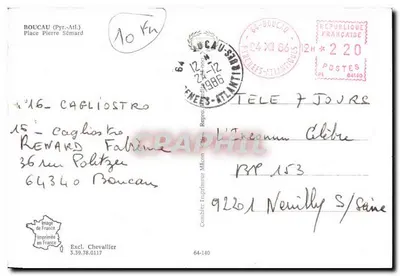 BOUCAU (Pyr.-Atl.)
Place Pierre Sémard
10 Fn
64 BOUCAU
12 H
24-12
1986
PYRENEES-ATLANTIQUES
64-BOUCAU
24 XII 86 12H
PYRENEES-ATLANTIQUES
REPUBLIQUE
FRANÇAISE
* 2 20
POSTES
N°16 - CAGLIOSTRO
15 - Cagliostro
RENARD Fabienne
36 rue Politzer
64340 Boucau
TELE 7 JOURS
L'Inconnu Célèbre
BP 153
92201 Neuilly S/Seine
PHIL
Image
de France
Imprimée
en France
Excl. Chevallier
5.39.38.0117
64-140